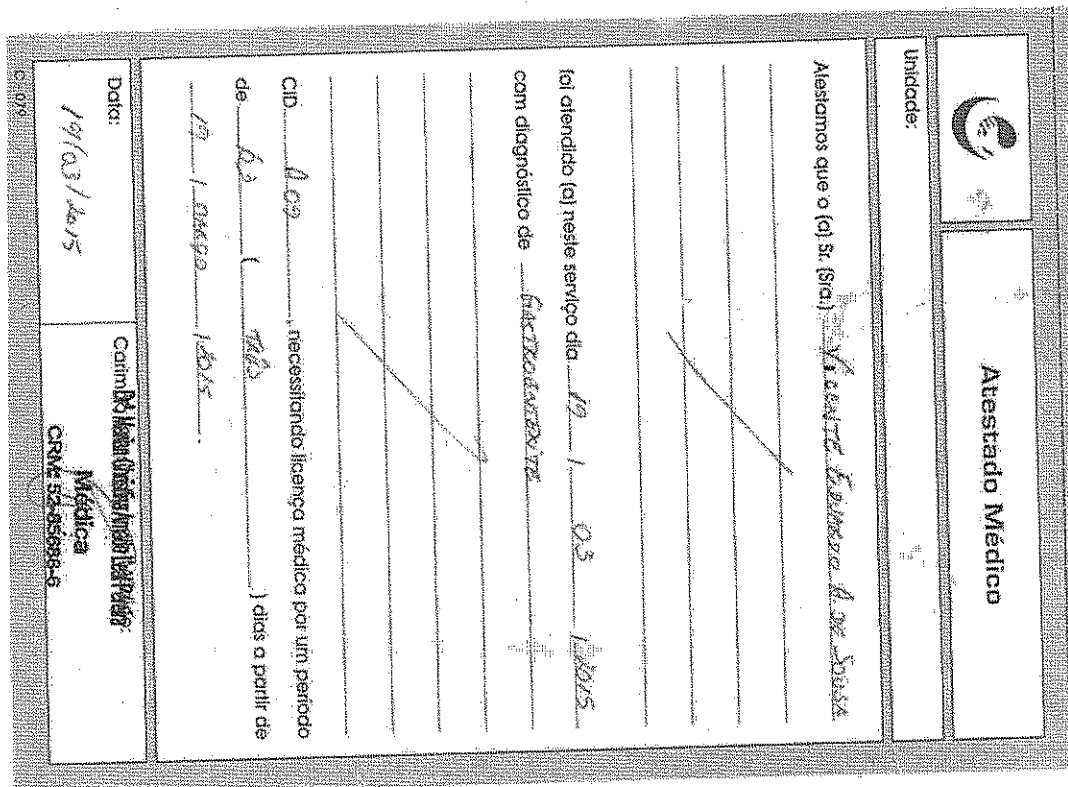 Atestado Médico
Unidade:
Atestamos que o (a) Sr. (Sra.) Vicente A. de Sousa
foi atendido (a) neste serviço dia 19 / 03 / 2015
com diagnóstico de
CID A 09, necessitando licença médica por um período
de 03 ( três ) dias a partir de
19 / março / 2015.
Data:
19/03/2015
Carimbo
Médica
CRM: 52-85686-6